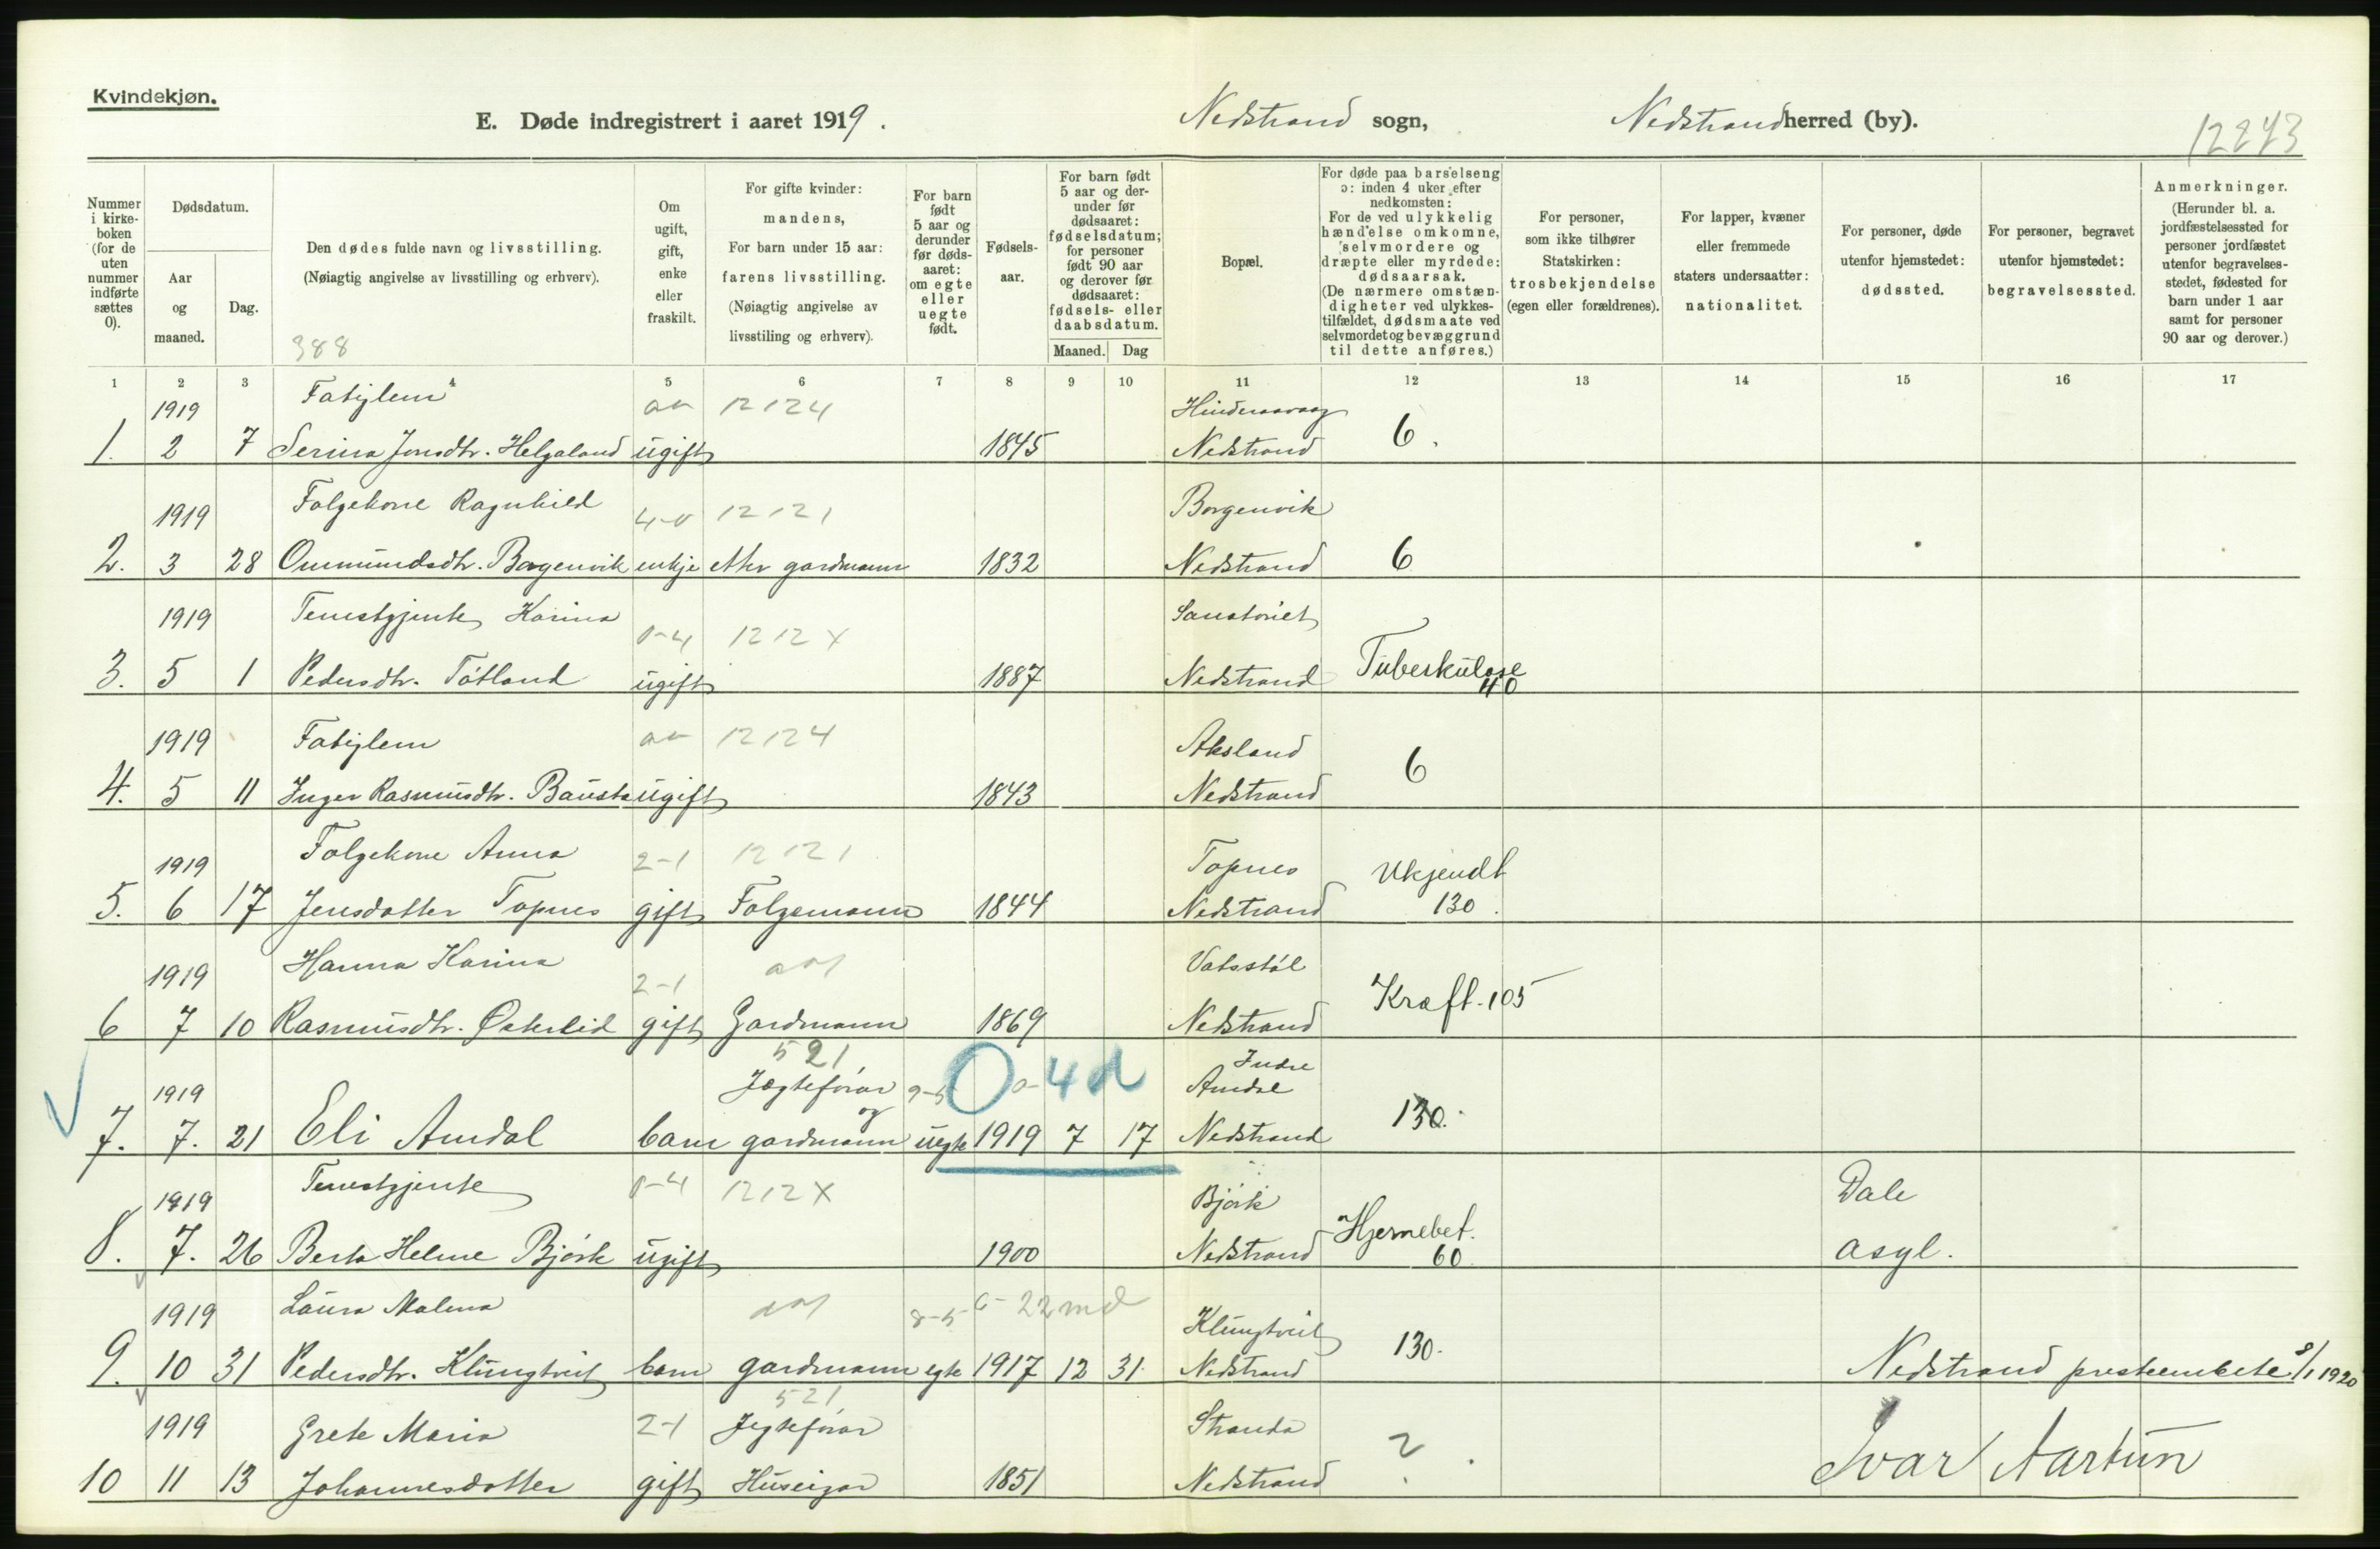 Kvindekjøn.
E. Døde indregistrert i aaret 1919.
Nedstrand sogn,
Nedstrand herred (by).
12243
Nummer i kirke-boken (for de uten nummer indførte sættes 0).
Dødsdatum.
Aar og maaned.
Dag.
Den dødes fulde navn og livsstilling.
(Nøiagtig angivelse av livsstilling og erhverv).
388
Om ugift, gift, enke eller fraskilt.
For gifte kvinder: mandens, For barn under 15 aar: farens livsstilling. (Nøiagtig angivelse av livsstiling og erhverv).
For barn født 5 aar og derunder før døds-aaret: om egte eller uegte født.
Fødsels-aar.
For barn født 5 aar og der-under før dødsaaret: fødselsdatum; for personer født 90 aar og derover før dødsaaret: fødsels- eller daabsdatum.
Maaned. Dag
Bopæl.
For døde paa barselseng ɔ: inden 4 uker efter nedkomsten: For de ved ulykkelig hændelse omkomne, selvmordere og dræpte eller myrdede: dødsaarsak. (De nærmere omstæn-digheter ved ulykkes-tilfældet, dødsmaate ved selvmordet og bevæggrund til dette anføres.)
For personer, som ikke tilhører Statskirken: trosbekjendelse (egen eller forældrenes).
For lapper, kvæner eller fremmede staters undersaatter: nationalitet.
For personer, døde utenfor hjemstedet: dødssted.
For personer, begravet utenfor hjemstedet: begravelsessted.
Anmerkninger. (Herunder bl. a. jordfæstelsessted for personer jordfæstet utenfor begravelses-stedet, fødested for barn under 1 aar samt for personer 90 aar og derover.)
1 2 3 4 5 6 7 8 9 10 11 12 13 14 15 16 17
1919 Fatiglem 12124 Hinderaavaag
1. 2 7 Serina Jonsdtr. Helgaland ugift 1845 Nedstrand 6.
1919 Folgekone Ragnhild 4-0 12121 Borgenvik
2. 3 28 Ommundsdtr. Borgenvik enkje etter gardmann 1832 Nedstrand 6
1919 Tenestgjente Karina 0-4 1212X Sanatoriet
3. 5 1 Pedersdtr. Tøtland ugift 1887 Nedstrand Tuberkulose 40
1919 Fatiglem 12124 Aksland
4. 5 11 Inger Rasmusdtr. Bausta ugift 1843 Nedstrand 6
1919 Folgekone Anna 2-1 12121 Topnes Ukjendt
5. 6 17 Jensdatter Topnes gift Folgemann 1844 Nedstrand 130.
1919 Hanna Karina 2-1 Vatsstøl
6 7 10 Rasmusdtr. Østerlid gift Gardmann 1869 Nedstrand Kræft. 105
521 Indre
1919 Jægteførar 9-5 0 0-4 d Amdal
7. 7. 21 Eli Amdal barn og gardmann uegte 1919 7 17 Nedstrand 130.
1919 Tenestgjente 0-4 1212X Bjørk Dale
8. 7. 26 Berta Helene Bjørk ugift 1900 Nedstrand Hjernebet. 60. asyl.
1919 Laura Malena 8-5 22 md Klungtveit
9. 10 31 Pedersdtr. Klungtveit barn gardmann egte 1917 12 31. Nedstrand 130. Nedstrand prestembete 8/1 1920
521
1919 Grete Maria 2-1 Jegteførar Stranda
10 11 13 Johannesdotter gift Huseigar 1851 Nedstrand ? Ivar Aartun